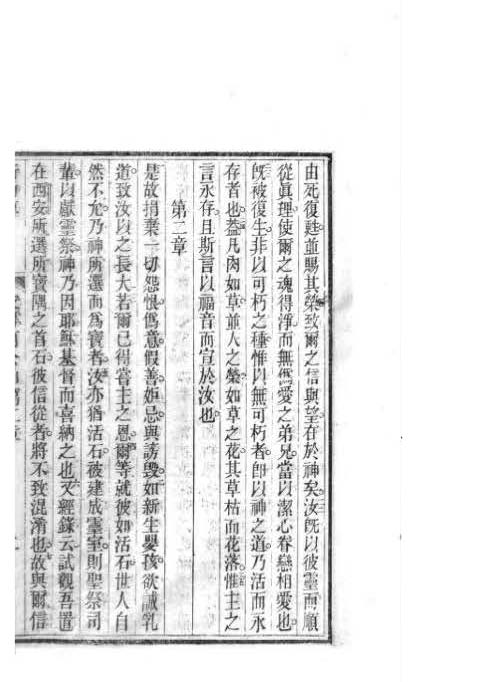 由死復甦並賜其榮致爾之信與望在於神矣汝既以彼靈而順
從眞理使爾之魂得淨而無僞愛之弟兄當以潔心眷戀相愛也
既被復生非以可朽之種惟以無可朽者卽以神之道乃活而永
存者也蓋凡肉如草並人之榮如草之花其草枯而花落惟主之
言永存且斯言以福音而宣於汝也
第二章
是故捐棄一切怨恨僞意假善妬忌與謗毀如新生嬰孩欲誠乳
道致汝以之長大若爾已得嘗主之恩爾等就彼如活石世人自
然不允乃神所選而爲寶者汝亦猶活石被建成靈室則聖祭司
輩以獻靈祭神乃因耶穌基督而喜納之也又經錄云試觀吾置
在西安所選所寶隅之首石彼信從者將不致混淆也故與爾信